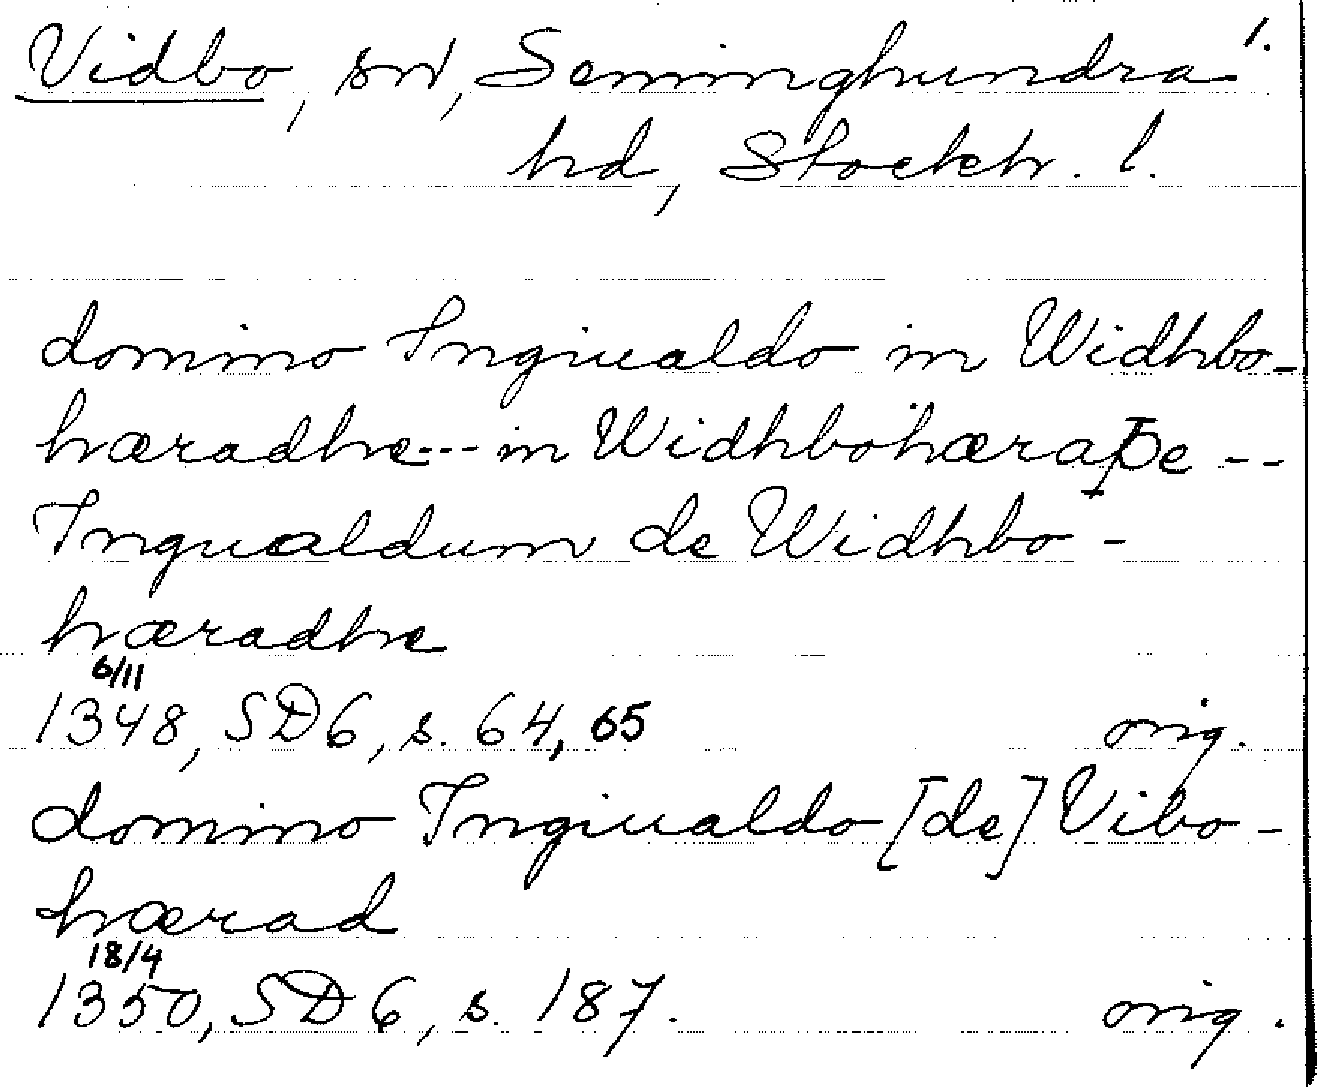 1.
Vidbo, sn, Seminghundra
hd, Stockh. l.
domino Ingiualdo in Widhbo-
hæradhe --- in Widhbohæraþe --
Ingualdum de Widhbo-
hæradhe
6/11
1348, SD 6, s. 64, 65 orig.
domino Ingiualdo [de] Vibo-
hærad
18/4
1350, SD 6, s. 187. orig.